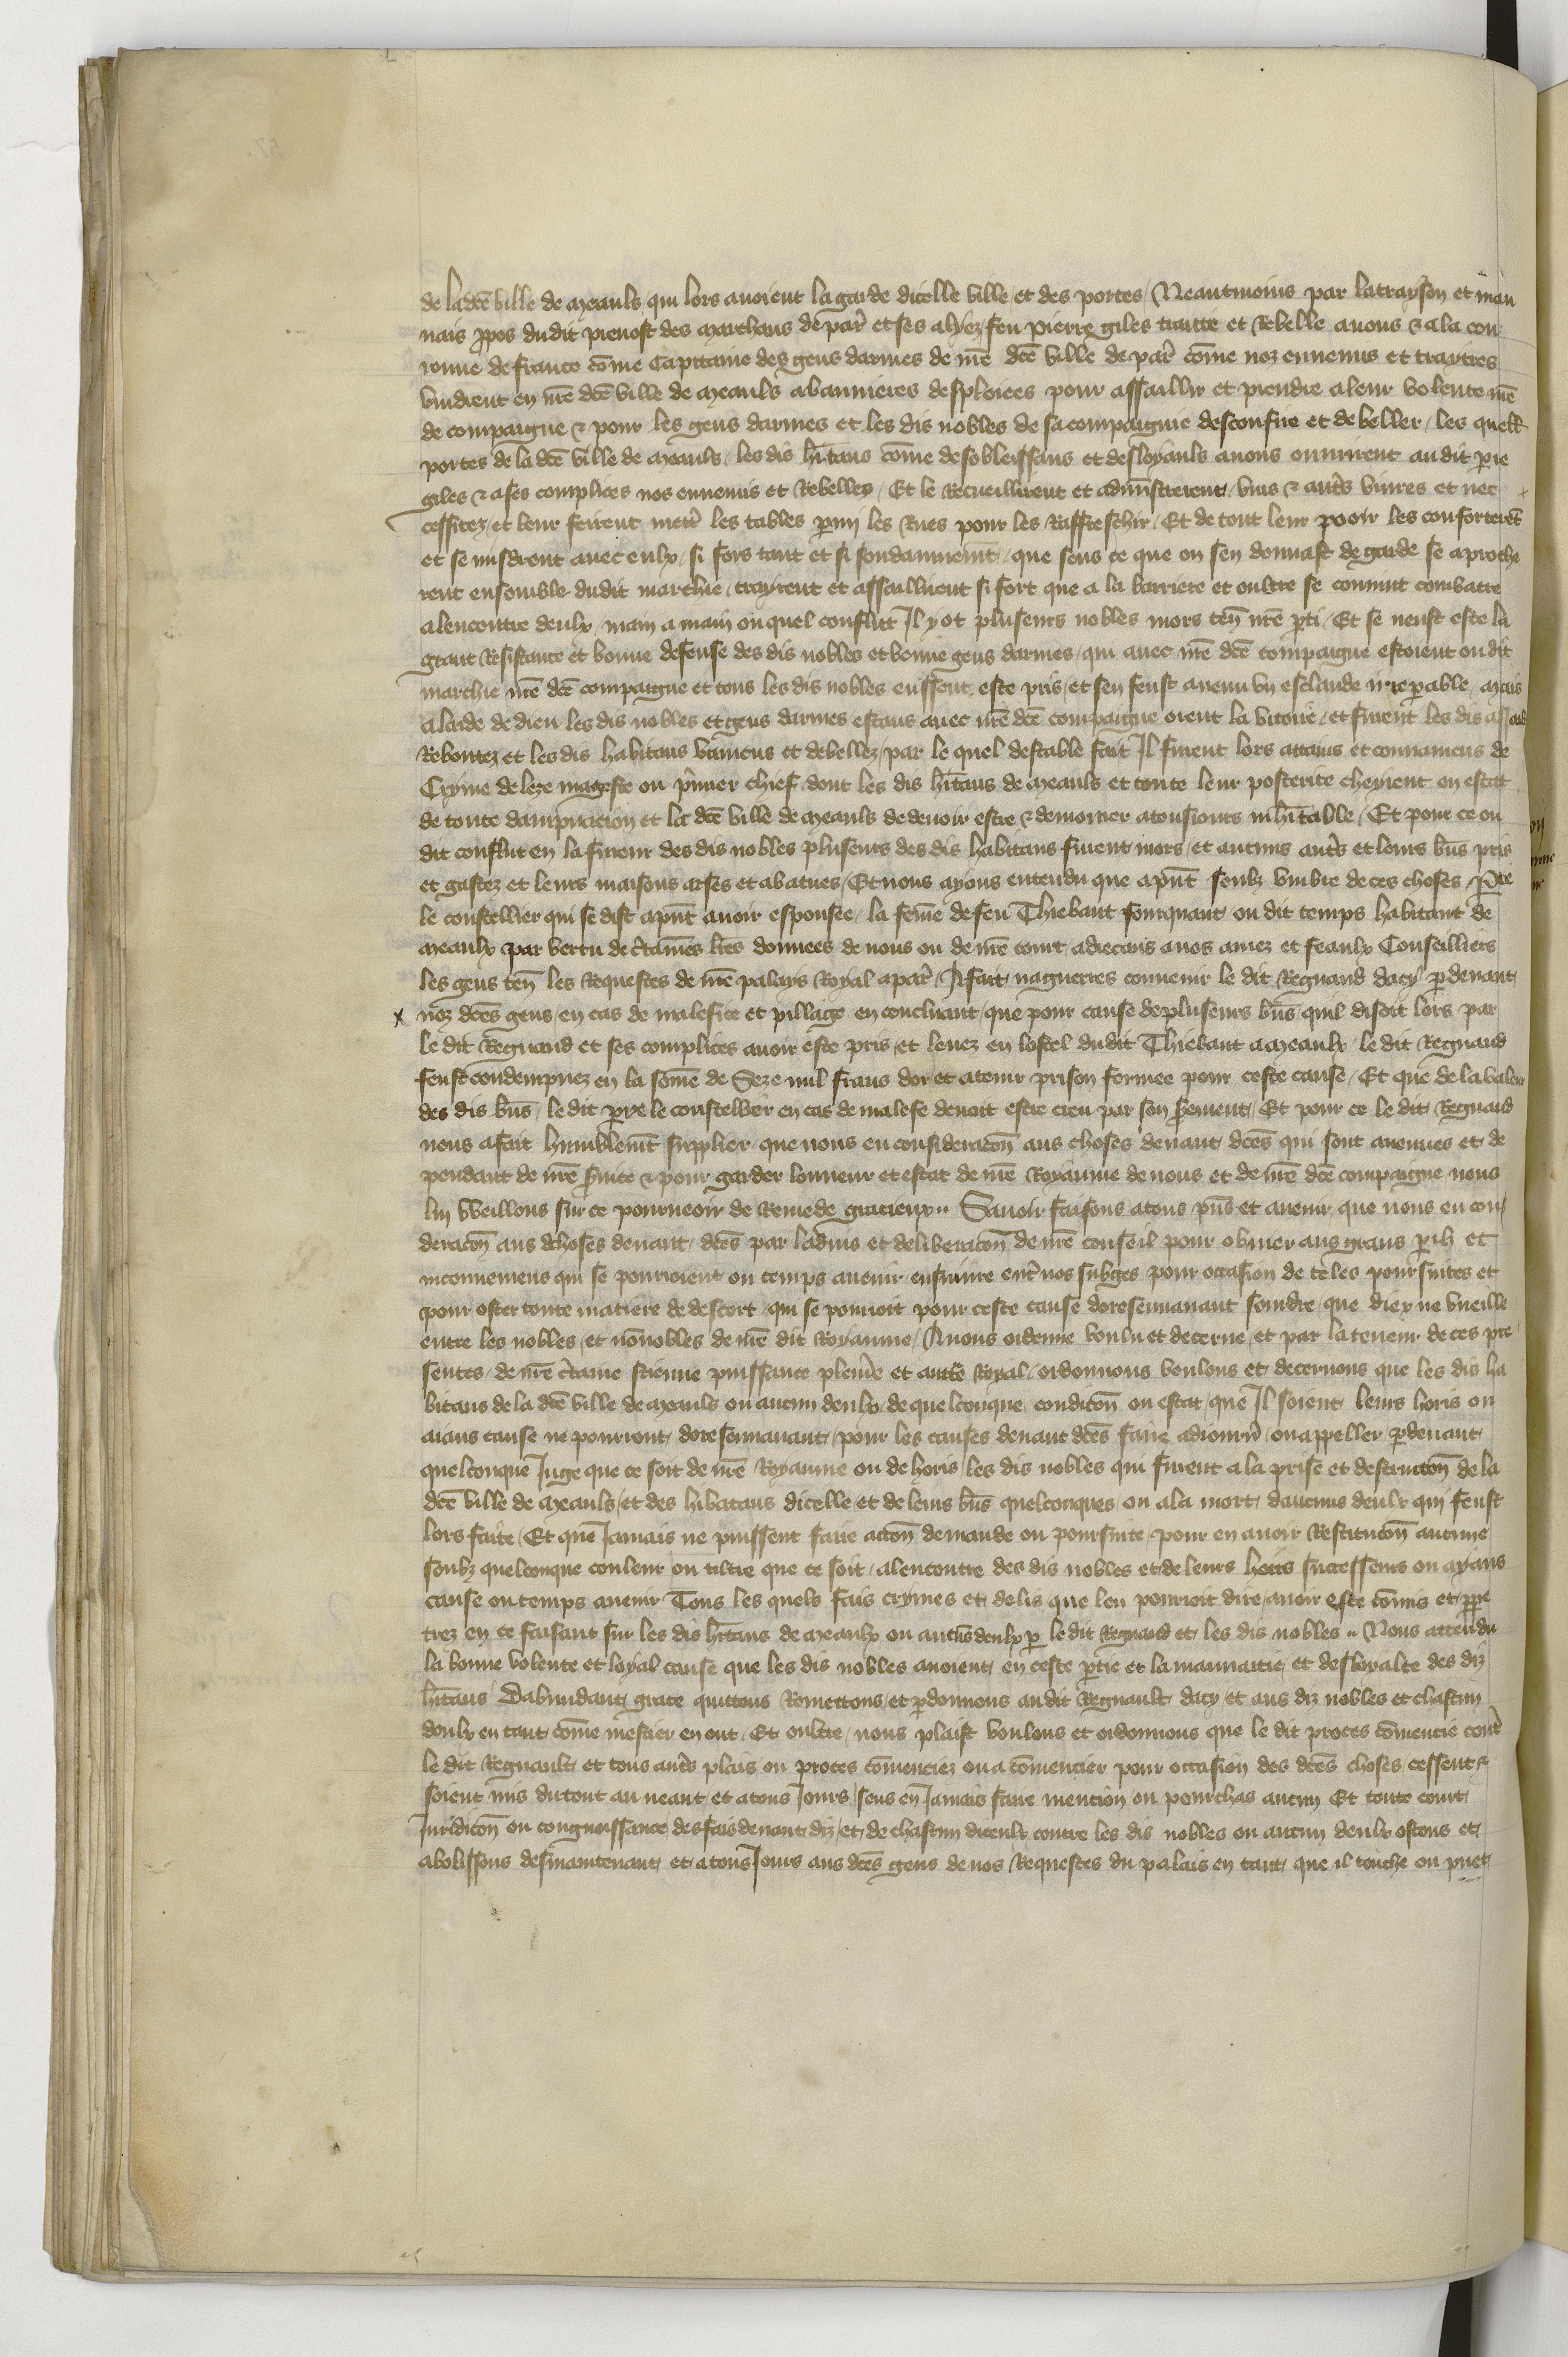 de la dcē ville de meauls qui lors auoient la garde dicelle ville et des portes / Neantmoins par la trayson et mau
uais ꝓpos dudit preuost des marchans de par̄ et ses aliez feu pierre giles traitte et Rebelle a nous & a la cou
ronne de france cōme Capitaine des gens darmes de nr̄e dcē ville de par̄ cōme noz ennemis et traytres
vindrent en nr̄e dcē ville de meauls a bannieres desploiees pour assaillir et prendre a leur volente nr̄e
de compaigne & pour les gens darmes et les dis nobles de sa compaignie desconfire et debeller / les quell
portes de la dcē ville de meauls / les dis hītans cōme desobeissans et desloyauls a nous ouurirent au dit pīe
giles & a ses complices nos ennemis et Rebelles / Et le Recueillirent et administrerent vins & aut̄s viures et nec
cessitez / et leur feirent mett̄ les tables ꝑmy les Rues pour les Raffreschir / Et de tout leur pooir les conforterēt
et se misdrent auec eulx / si fors tant et si soudainnemt̄ / que sens ce que on sen donnast de garde se aproche
rent ensemble du dit marchie / trayrent et assaillirent si fort que a la barriere et oultre se conuint combatre
alencontre deulx / main a main ou quel conflict Il y ot pluseurs nobles mors ten̄ nr̄e ꝑti / Et se neust este la
grant Resistance et bonne defense des dis nobles et bonne gens darmes / qui auec nr̄e dcē compaigne estoient ou dit
marchie nr̄e dcē compaigne et tous les dis nobles eussent este pris / et sen feust auenu vn esclande irreꝑable / mais
a laide de dieu les dis nobles et gens darmes estans auec nr̄e dcē compaigne orent la vitoire / et furent les dis
Reboutez et les dis habitans vaincus et debellez / par le quel destable fait Il furent lors attains et conuaincus de
Cryme de leze mageste ou p̄mier chief / dont les dis hītans de meauls et toute leur posterite cheyrent en estat
de toute dampnacion et la dcē ville de meauls de deuoir estre & demourer a tousiours inhītable / Et pour ce ou
dit conflict en la fureur des dis nobles pluseurs des dis habitans furent mors / et aucuns aut̄s et leurs bn̄s pris
et gastez et leurs maisons arses et abatues / Et nous ayons entendu que apn̄t soubz vmbre de ces choses
le constellier qui se dist apn̄t auoir espousee / la feme de feu Thiebaut fourquaut / ou dit temps habitant de
meaulx par vertu de c̄taines lr̄es donnees de nous ou de nr̄e court adrecans a nos amez et feaulx Conseilliers
les gens ten̄ les Requestes de nr̄e palays Royal a par̄ / A fait naguerres conuenir le dit Regnaud dacy ꝑdeuant
noz dcēs gens / en cas de malefice et pillage en concluant / que pour cause de pluseurs bn̄s / quil disoit lors par
le dit Regnaud et ses complices auoir este pris et leuez en lostel du dit Thiebaut a meaulx / le dit Regnaud
feust condempnez en la some de Seze mil frans dor et a tenir prison fermee pour ceste cause / Et que de la valeur
des dis bn̄s / le dit pꝑe le constellier en cas de malefe deuoit estre creu par son ẜement / Et pour ce le dit Regnaud
nous a fait humblemt̄ supplier / que nous en consideracōn aus choses deuant dcēs qui sont auenues et de
pendant de nr̄e ẜuice & pour garder lonneur et estat de nr̄e Royaume de nous et de nr̄e dcē compaigne nous
luy Weillons sur ce pourueoir de Remede gracieux .. Sauoir faisons a tous pn̄s et auenir que nous en con
deracōn aus choses deuant dcēs par laduis et deliberacōn de nr̄e conseil pour obuier aus grans ꝑilz et
inconueniens qui se pourroient ou temps auenir ensuiure ent̄ nos subges pour occasion de teles poursuites et
pour oster toute matiere de descort / qui se pourroit pour ceste cause doresenauant soudre / que diex ne vueille
entre les nobles / et nōnobles de nr̄e dit Royaume / Auons ordenne voulu et decerne / et par la teneur de ces pre
sentes / de nr̄e c̄taine science puissance plenīe et auctē Royal / ordonnons voulons et decernons que les dis ha
bitans de la dcē ville de meauls ou aucun deulx / de quelconque condicōn ou estat / que Il soient leurs hoirs ou
aians cause ne pourront doresenauant / pour les causes deuant dcēs faire adiourn̄ / ou appeller ꝑdeuant
quelconque Juge que ce soit de nr̄e Royaume ou dehors / les dis nobles qui furent a la prise et destruccōn de la
dcē ville de meauls / et des hibatans dicelle / et de leurs bn̄s quelconques / ou a la mort daucuns deulx qui feust
lors faite / Et que Jamais ne puissent faire accōn demande ou poursuite / pour en auoir Restitucōn aucune
soubz quelconque couleur ou tiltre que ce soit / alencontre des dis nobles et de leurs hoirs successeurs ou ayans
cause ou temps auenir Tous les quels fais crymes et delis que len pourroit dire / auoir este cōmis et ꝑpe
trez en ce faisant sur les dis hītans de meaulx ou aucūs deulx ꝑ le dit Regnaud et les dis nobles .. Nous attendu
la bonne volente et loyal cause que les dis nobles auoient / en ceste ꝑtie et la mauuaitie et desloyalte des diz
hītans Dabundant grace quittons Remettons / et ꝑdonnons au dit Regnault dacy et aus diz nobles et chascun
deulx en tant cōme mestier en ont / Et oultre / nous plaist voulons et ordonnons que le dit proces cōmencie cont̄
le dit Regnault / et tous aut̄s plais ou proces cōmenciez ou a cōmencier pour occasion des dcēs choses / cessent &
soient mis du tout au neant / et a tous Jours / sens en Jamais faire mencion ou pourchas aucun Et toute court
Juridicōn ou congnoissance des fais deuant diz / et de chascun diceulx contre les dis nobles ou aucun deulx ostons et
abolissons desmaintenant / et a tous Jours aus dcēs gens de nos Requestes du palais en tant / que il touche ou puet